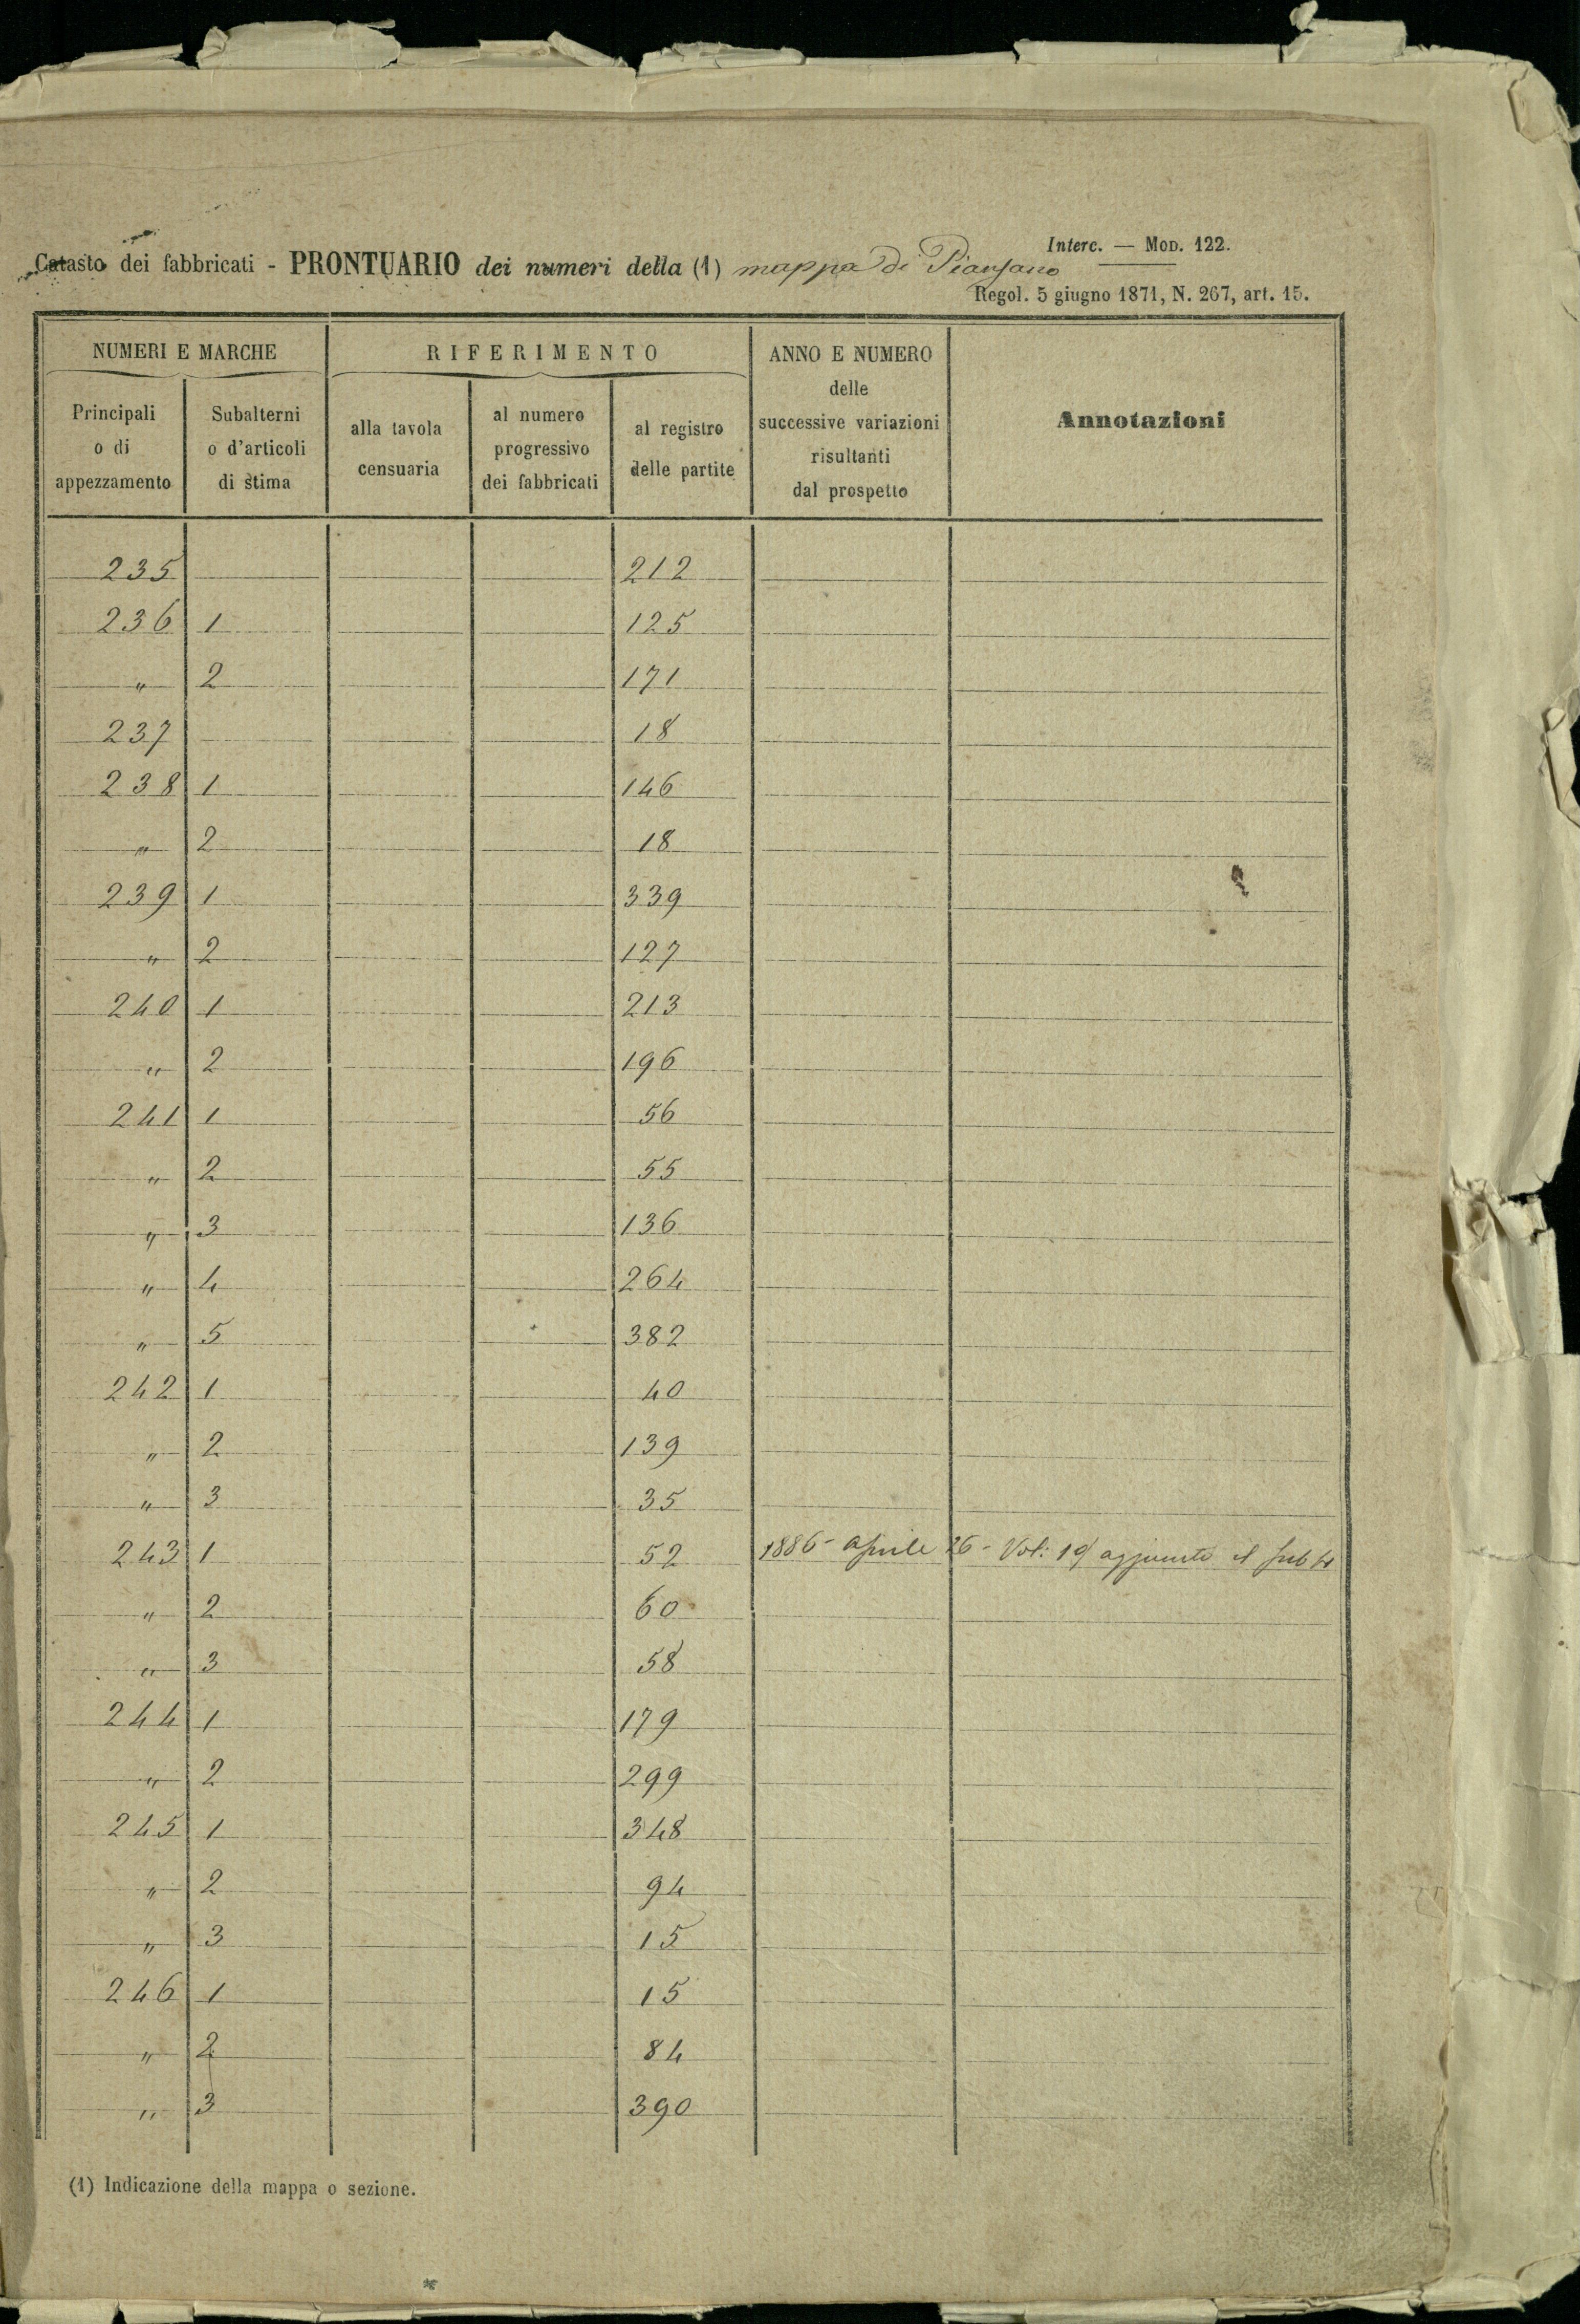 Interc. — Mod. 122.
Catasto dei fabbricati - PRONTUARIO dei numeri della (1) mappa di Piansano
Regol. 5 giugno 1871, N. 267, art. 15.
NUMERI E MARCHE RIFERIMENTO ANNO E NUMERO delle successive variazioni risultanti dal prospetto Annotazioni
Principali o di appezzamento Subalterni o d'articoli di stima alla tavola censuaria al numero progressivo dei fabbricati al registro delle partite
235 212
236 1 125
" 2 171
237 18
238 1 146
" 2 18
239 1 339
" 2 127
240 1 213
" 2 196
241 1 56
" 2 55
" 3 136
" 4 264
" 5 382
242 1 40
" 2 139
" 3 35
243 1 52 1886 - aprile 26 - Vol: 19 aggiunto il sub 4
" 2 60
" 3 58
244 1 179
" 2 299
245 1 348
" 2 94
" 3 15
246 1 15
" 2 84
" 3 390
(1) Indicazione della mappa o sezione.